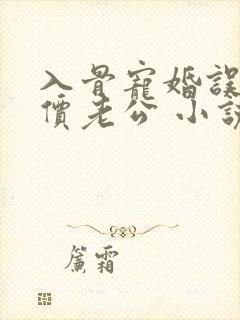 入骨寵婚誤
價老公 小說
簾霜